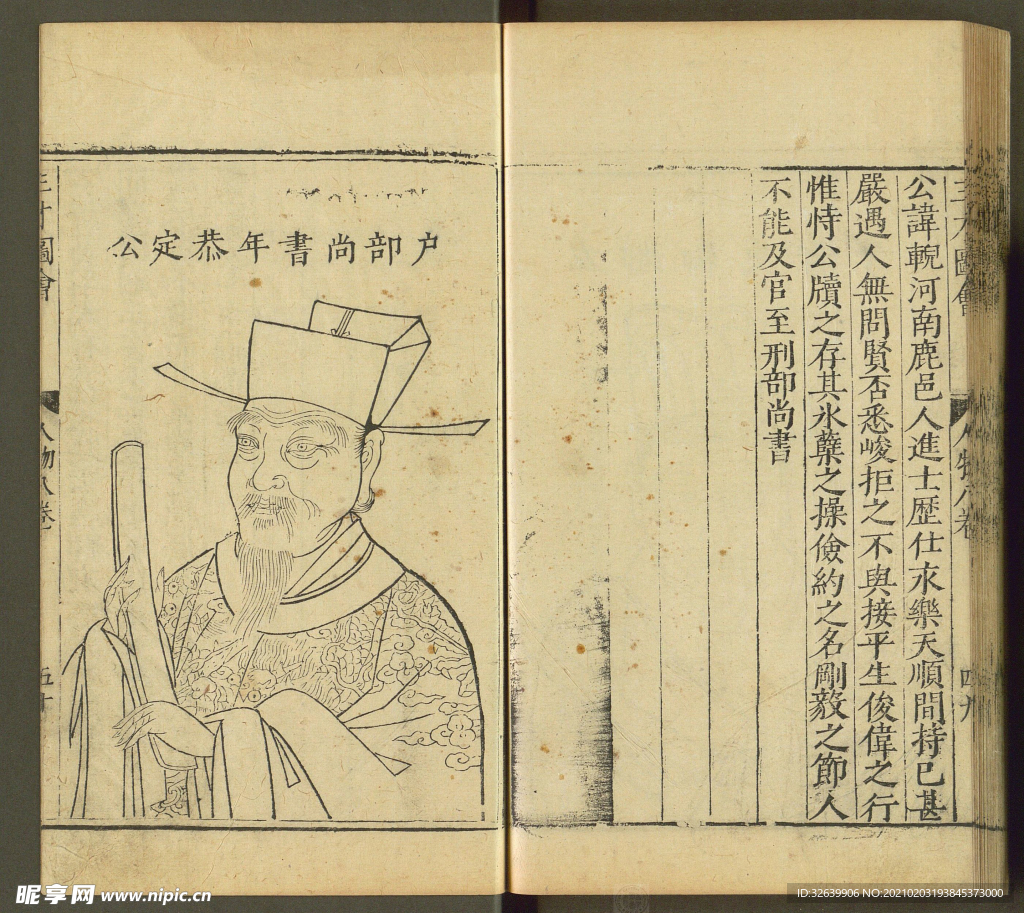 三才圖會
人物八卷
四九
公諱輗河南鹿邑人進士歴仕永樂天順間持已甚
嚴遇人無問賢否悉峻拒之不與接平生俊偉之行
惟恃公牘之存其氷蘗之操儉約之名剛毅之節人
不能及官至刑部尚書
户部尚書年恭定公
三才圖會
人物八卷
五十
昵享网 www.nipic.cn
ID:32639906 NO:20210203193845373000